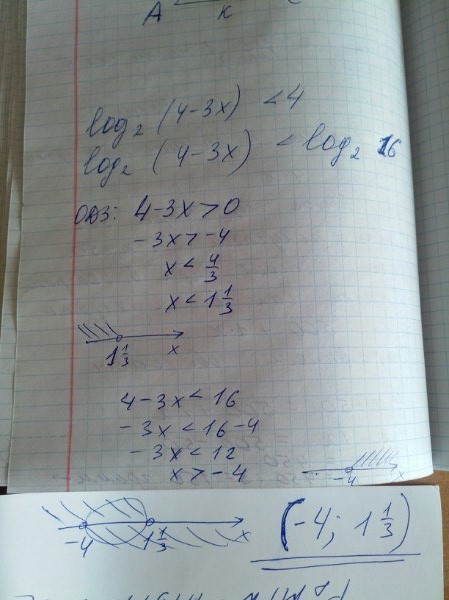 A K
log₂ (4-3x) < 4
log₂ (4-3x) < log₂ 16
ОДЗ: 4-3x>0
-3x>-4
x < 4/3
x < 1 1/3
1 1/3 x
4-3x<16
-3x<16-4
-3x<12
x>-4
-4 x
-4 1 1/3 x
(-4; 1 1/3)